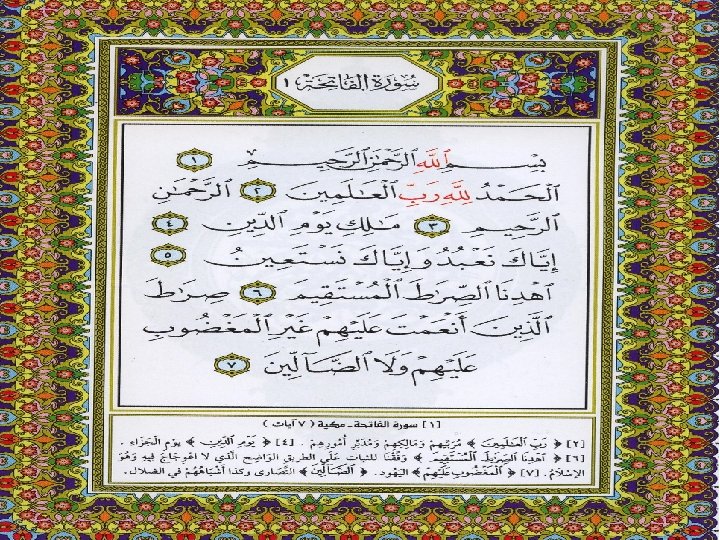 سُورَةُ الفَاتِحَةِ ١
بِسْمِ ٱللَّهِ ٱلرَّحْمَٰنِ ٱلرَّحِيمِ ١
ٱلْحَمْدُ لِلَّهِ رَبِّ ٱلْعَٰلَمِينَ ٢ ٱلرَّحْمَٰنِ
ٱلرَّحِيمِ ٣ مَٰلِكِ يَوْمِ ٱلدِّينِ ٤
إِيَّاكَ نَعْبُدُ وَإِيَّاكَ نَسْتَعِينُ ٥
ٱهْدِنَا ٱلصِّرَٰطَ ٱلْمُسْتَقِيمَ ٦ صِرَٰطَ
ٱلَّذِينَ أَنْعَمْتَ عَلَيْهِمْ غَيْرِ ٱلْمَغْضُوبِ
عَلَيْهِمْ وَلَا ٱلضَّآلِّينَ ٧
[١] سورة الفاتحة ـ مكية (٧ آيات)
[٢] ﴿ رَبِّ ٱلْعَٰلَمِينَ ﴾ مُرَبِّيهِمْ وَمَالِكِهِمْ وَمُدَبِّرِ أُمُورِهِمْ . [٤] ﴿ يَوْمِ ٱلدِّينِ ﴾ يَوْمِ الْجَزَاءِ .
[٦] ﴿ ٱهْدِنَا ٱلصِّرَٰطَ ٱلْمُسْتَقِيمَ ﴾ وَفِّقْنَا لِلثَّبَاتِ عَلَى الطَّرِيقِ الْوَاضِحِ الَّذِي لَا اعْوِجَاجَ فِيهِ وَهُوَ
الإِسْلَامُ . [٧] ﴿ ٱلْمَغْضُوبِ عَلَيْهِمْ ﴾ الْيَهُودِ . ﴿ ٱلضَّآلِّينَ ﴾ النَّصَارَى وَكَذَا أَشْبَاهُهُمْ فِي الضَّلَالِ .